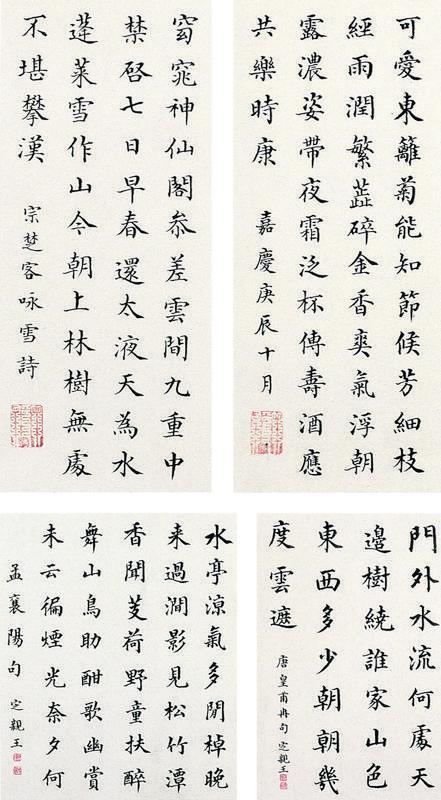 可愛東籬菊能知節候芳細枝
經雨潤繁蕋碎金香爽氣浮朝
露濃姿帶夜霜泛杯傳壽酒應
共樂時康
嘉慶庚辰十月
窈窕神仙閣叅差雲間九重中
禁啓七日早春還太液天為水
蓬萊雪作山今朝上林樹無處
不堪攀漢
宗楚客咏雪詩
門外水流何處天
邊樹繞誰家山色
東西多少朝朝幾
度雲遮
唐皇甫冉句 定親王
水亭涼氣多閒棹晚
来過澗影見松竹潭
香聞芰荷野童扶醉
舞山鳥助酣歌幽賞
未云徧煙光奈夕何
孟襄陽句 定親王